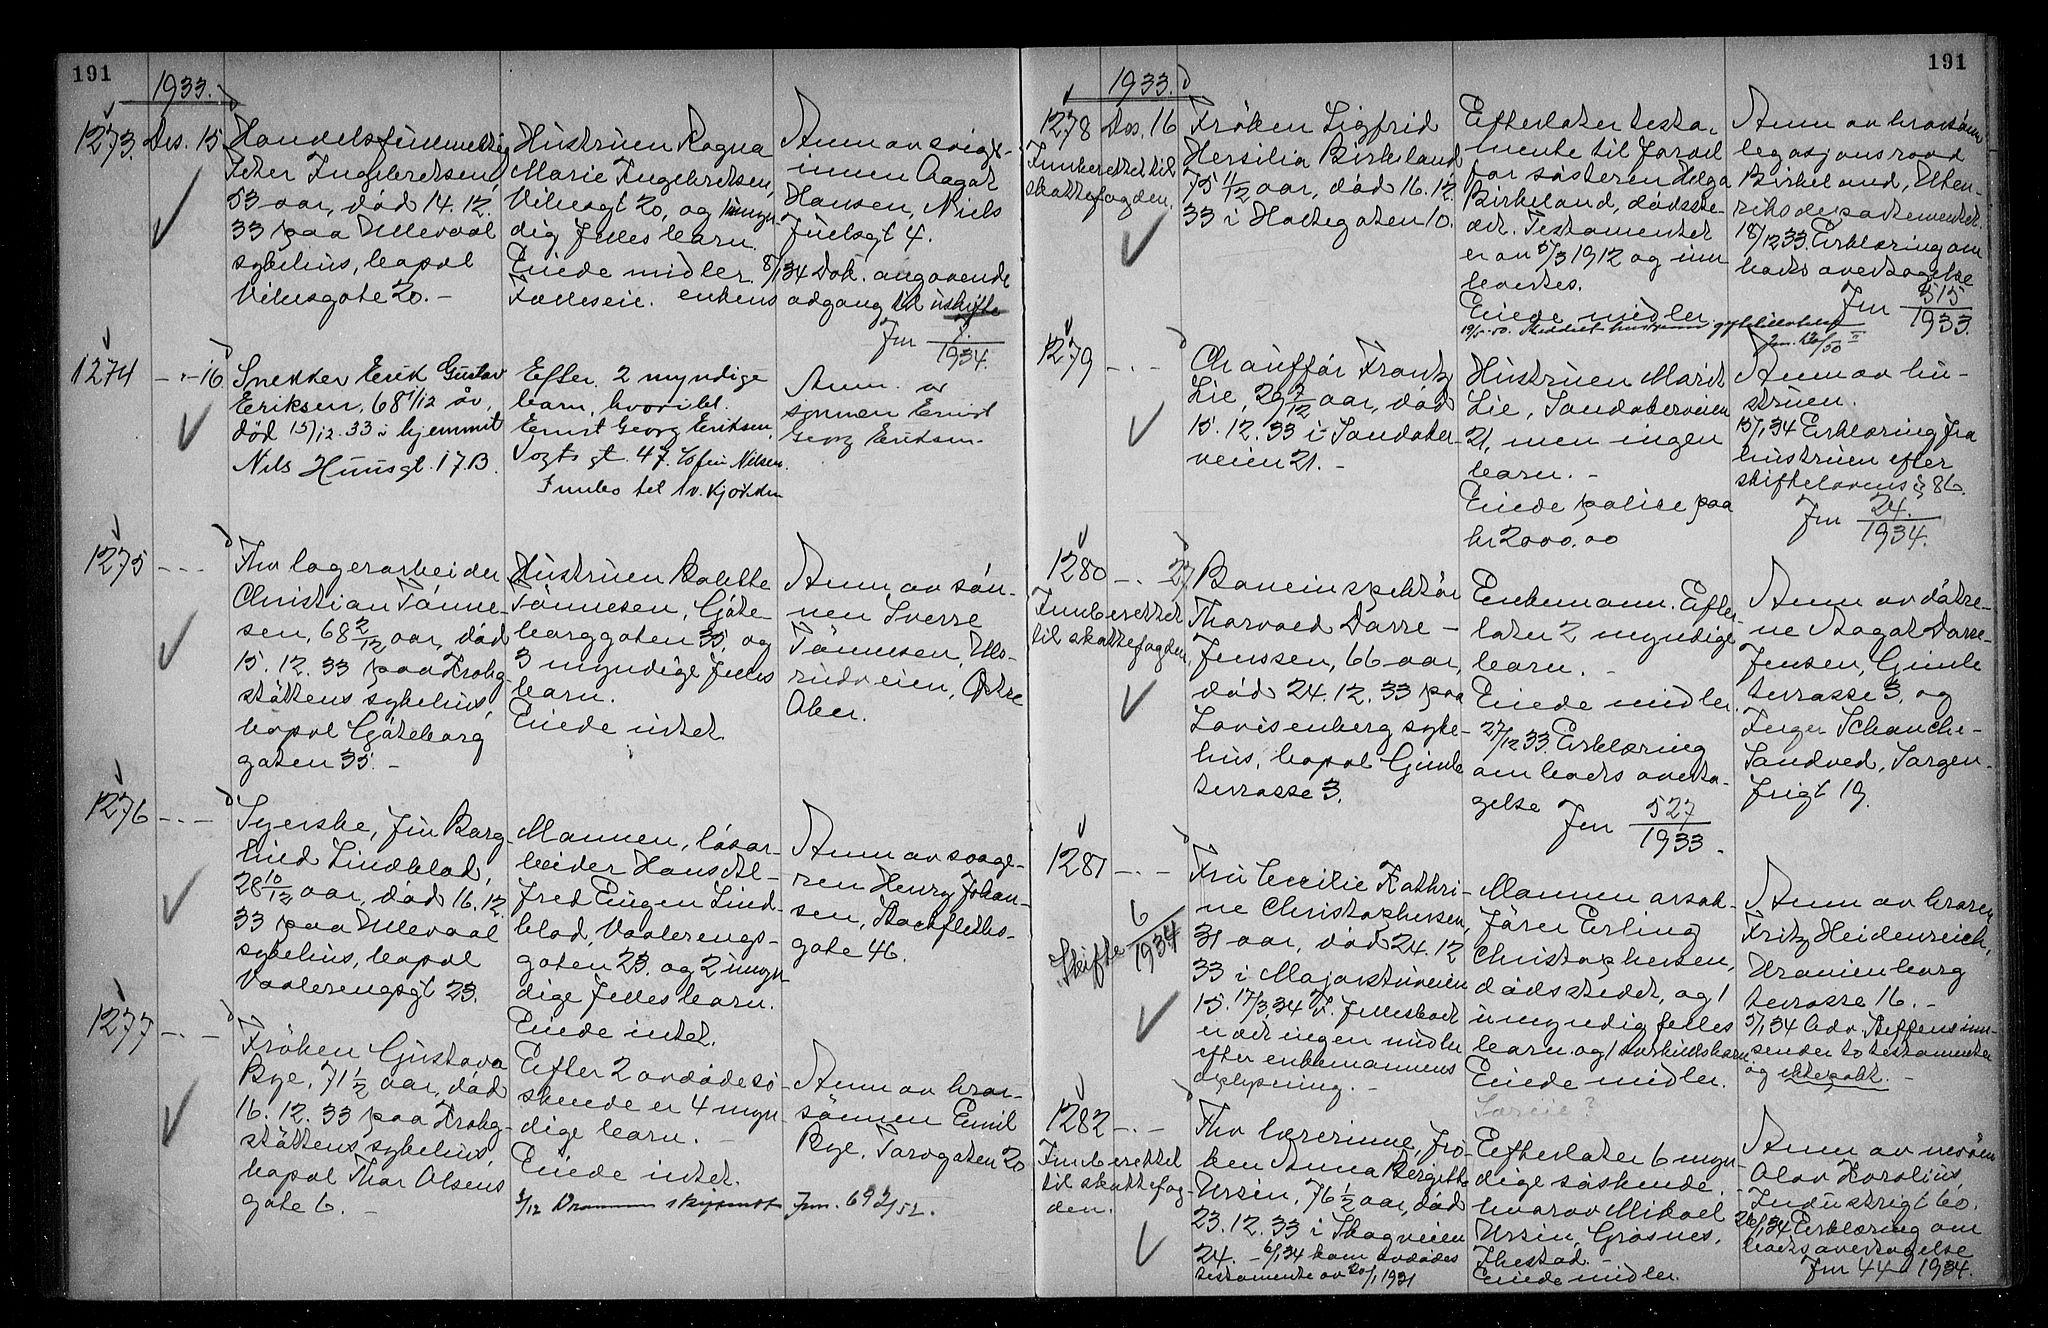 191
1933.
1273. Des. 15
Handelsfullmektig
Peter Ingebretsen,
53 aar, död 14.12.
33 paa Ullevaal
sykehus, bopæl
Vibesgate 20. –
Hustruen Ragna
Marie Ingebretsen,
Vibesgt 20, og 1 umyn-
dig felles barn.
Eiede midler.
Fælleseie.
Anm av svigr-
innen Aagot
Hansen, Niels
Juelsgt 4.
8/1 34 Dok. angaaende
enkens adgang til uskifte
Jnr 7./1934.
1274 – " – 16
Snekker Erik Gustav
Eriksen, 68 1/12 år,
död 15/12.33 i hjemmet
Nils Huusgt. 17.B.
Efter. 2 myndige
barn, hvoribl.
Ernst Georg Eriksen,
Vogts gt. 47.
Innbo til 1 v. kjökken
Anm. av
sønnen Ernst
Georg Eriksen.
1275 – – –
Fhv lagerarbeider
Christian Tönne-
sen, 68 2/12 aar, död
15.12.33 paa Krohg-
støttens sykehus,
bopæl Göteborg
gaten 35. –
Hustruen Bolette
Tönnesen, Göte-
borggaten 35, og
3 myndige felles
barn.
Eiede intet.
Anm av søn-
nen Sverre
Tönnesen, Ulls-
rudveien, Østre
Aker.
1276 – . –
Syerske, fru Borg-
hild Lindblad,
28 10/12 aar, död 16.12.
33 paa Ullevaal
sykehus, bopæl
Vaalerengsgt 23.
Mannen, løsar-
beider Hans Al-
fred Eugen Lind-
blad, Vaalerengs-
gaten 23, og 2 umyn-
dige felles barn.
Eiede intet.
Anm av svoge-
ren Henry Johan-
sen, Stockfleths-
gate 46.
1277 – . –
Fröken Gustava
Bye, 71 1/2 aar, död
16.12.33 paa Krohg-
støttens sykehus,
bopæl Thor Olsens
gate 6. –
Efter 2 avdöde sø-
skende er 4 myn-
dige barn. –
Eiede intet.
Anm av bror-
sønnen Emil
Bye, Torvgaten 20
Jnr. 692/52.
191
1933.
1278 Des. 16
Innberettet til
skattefogden.
Fröken Sigfrid
Hersilia Birkeland
75 11/12 aar, död 16.12.
33 i Holtegaten 10.
Efterlater testa-
mente til fordel
for søsteren Helga
Birkeland, dødsste-
det. Testamentet
er av 5/3 1912 og inn
levertes.
Eiede midler.
Anm av brorsønn
legasjonsraad
Birkeland, Uten-
riksdepartementet.
18/12 33. Erklæring om
boets overtagelse
Jnr 515/1933.
1279 – . –
Chauffør Frantz
Lie, 29 7/12 aar, död
15.12.33 i Sandaker-
veien 21. –
Hustruen Marit
Lie, Sandakerveien
21, men ingen
barn. –
Eiede polise paa
kr 2000.00
Anm av hu-
struen.
15/1 34 Erklæring fra
hustruen efter
skiftelovens § 86.
Jnr 24./1934.
1280 – . 27
Innberettet
til skattefogden,
Baneinspektør
Thorvald Darre-
Jenssen, 66 aar,
død 24.12.33 paa
Lovisenberg syke-
hus, bopæl Gimle
terrasse 3.
Enkemann. Efter-
later 2 myndige
barn. –
Eiede midler.
27/12 33. Erklæring
om boets overta-
gelse Jnr 527/1933.
Anm av døtre-
ne Aagot Darre-
Jensen, Gimle
terrasse 3, og
Inger Schanche-
Sandved, Jørgen-
frigt 19.
1281 – . –
Skifte 6/1934
Fru Cecilie Kathri-
ne Christophersen,
31 aar, död 24.12
33 i Majorstuveien
15. 17/3.34 I fellesboet
er det ingen midler
efter enkemannens
oplysning. –
Mannen arsok-
fører Erling
Christophersen,
dødsstedet, og 1
umyndig felles
barn og 1 særkullsbarn
Eiede midler.
Særeie?
Anm av broren
Fritz Heidenreich,
Uranienborg
terrasse 16. –
5/1 34 Adv. Steffens inn-
sender to testamenter
og ektepakt. –
1282 – . –
Innberettet
til skattefog-
den.
Fhv lærerinne, frø-
ken Anna Bergitte
Ursin, 76 1/2 aar, död
23.12.33 i Skogveien
24. – 6/1 34 kom avdødes
testamente av 20/1 1921
Efterlater 6 myn-
dige søskende,
hvorav Mikael
Ursin, Grasnes,
Ibestad. –
Eiede midler.
Anm av nevøen
Olav Karolius,
Industrigt 60.
26/1 34 Erklæring om
boets overtagelse
Jnr 44 1934.